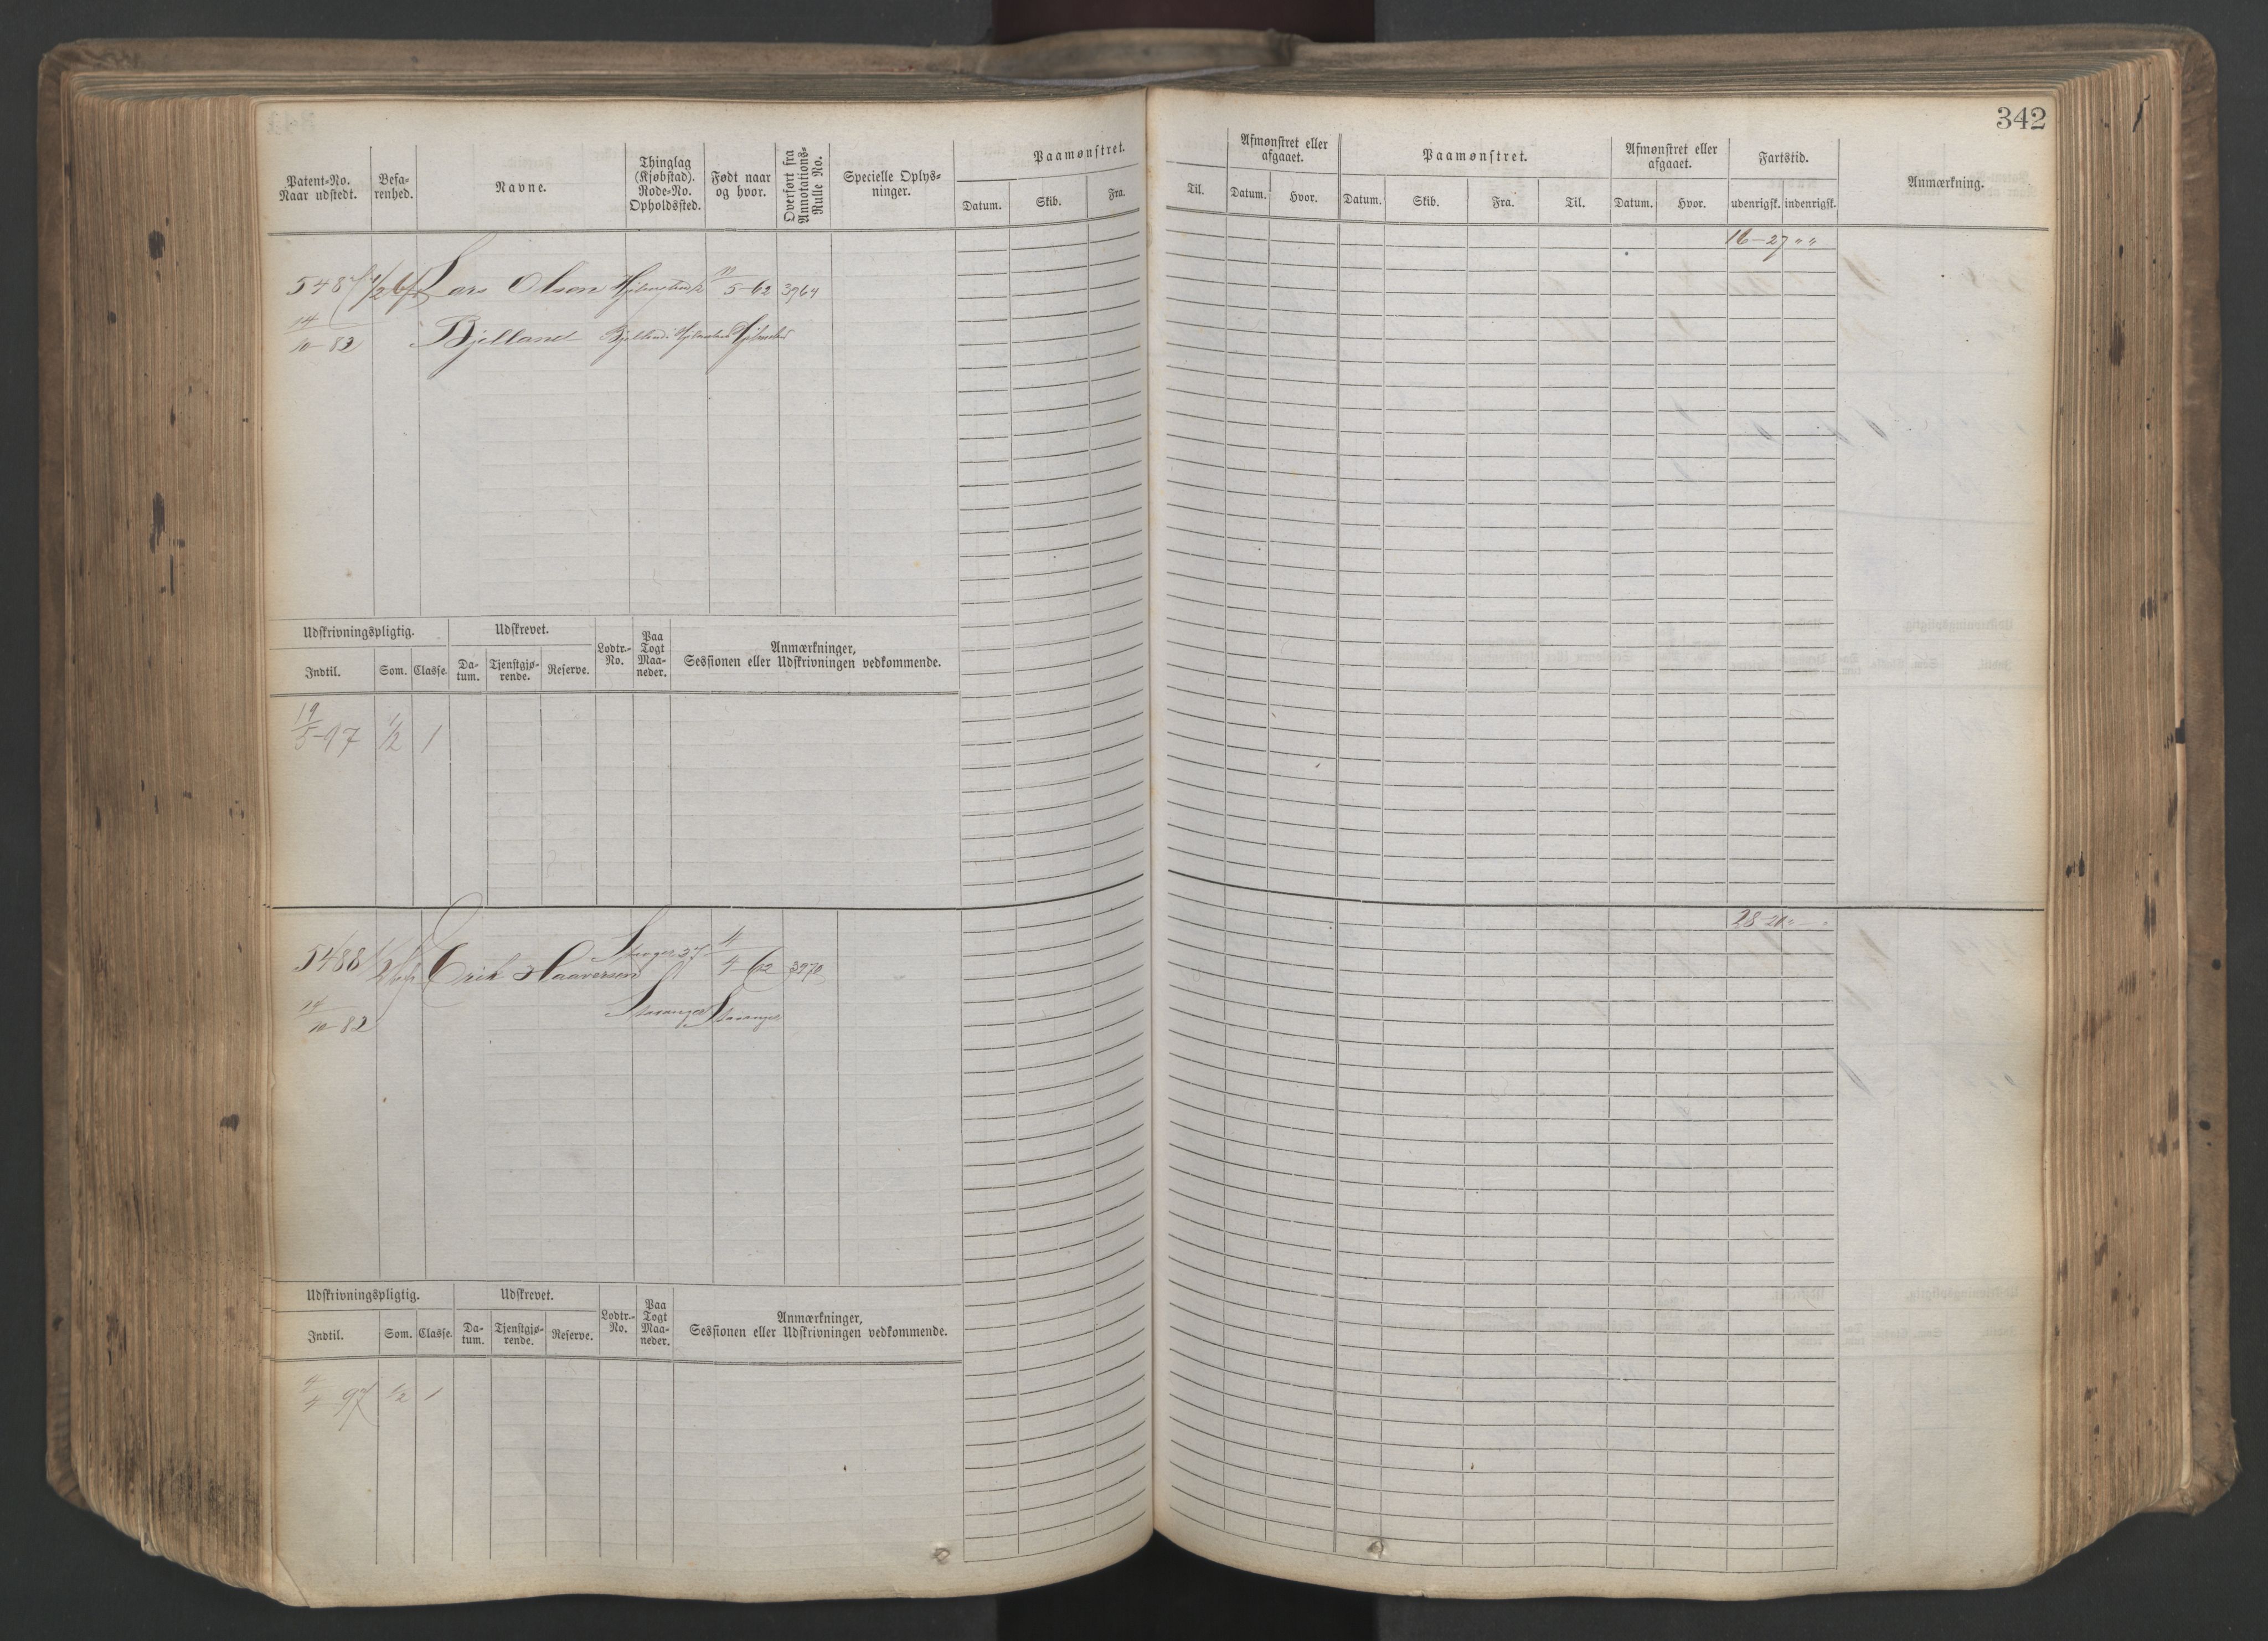 342
Patent-No. Naar udstedt.
Befarenhed.
Navne.
Thinglag (Kjøbstad). Rode-No. Opholdssted.
Født naar og hvor.
Overført fra Annotations-Rulle No.
Specielle Oplysninger.
Paamønstret.
Datum. Skib. Fra. Til.
Afmønstret eller afgaaet.
Datum. Hvor.
Paamønstret.
Datum. Skib. Fra. Til.
Afmønstret eller afgaaet.
Datum. Hvor.
Fartstid.
udenrigsk. indenrigsk.
Anmærkning.
16-27 " "
5487 1/2 bf Lars Olsen 5-62 3964
14/10-82 Bjelland
Udskrivningspligtig. Udskrevet. Lodtr.-No. Paa Togt Maaneder. Anmærkninger, Sessionen eller Udskrivningen vedkommende.
Indtil. Som. Classe. Datum. Tjenstgjørende. Reserve.
19/5-97 1/2 1
5488 1/2 bf Erik Haaversen 4/4-62 3970
14/10-82 Stavanger Stavanger
Udskrivningspligtig. Udskrevet. Lodtr.-No. Paa Togt Maaneder. Anmærkninger, Sessionen eller Udskrivningen vedkommende.
Indtil. Som. Classe. Datum. Tjenstgjørende. Reserve.
4/4 97 1/2 1